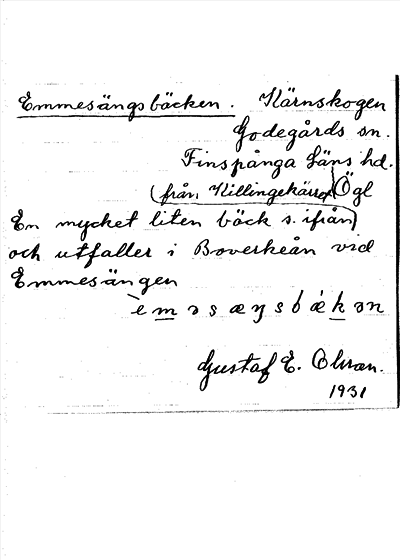 Emmesängsbäcken. Kärnskogen
Godegårds sn.
Finspånga Läns hd.
(från Killingekärret) Ögl
En mycket liten bäck s. ifrån
och utfaller i Boverkeån vid
Emmesängen
Gustaf E.
1931